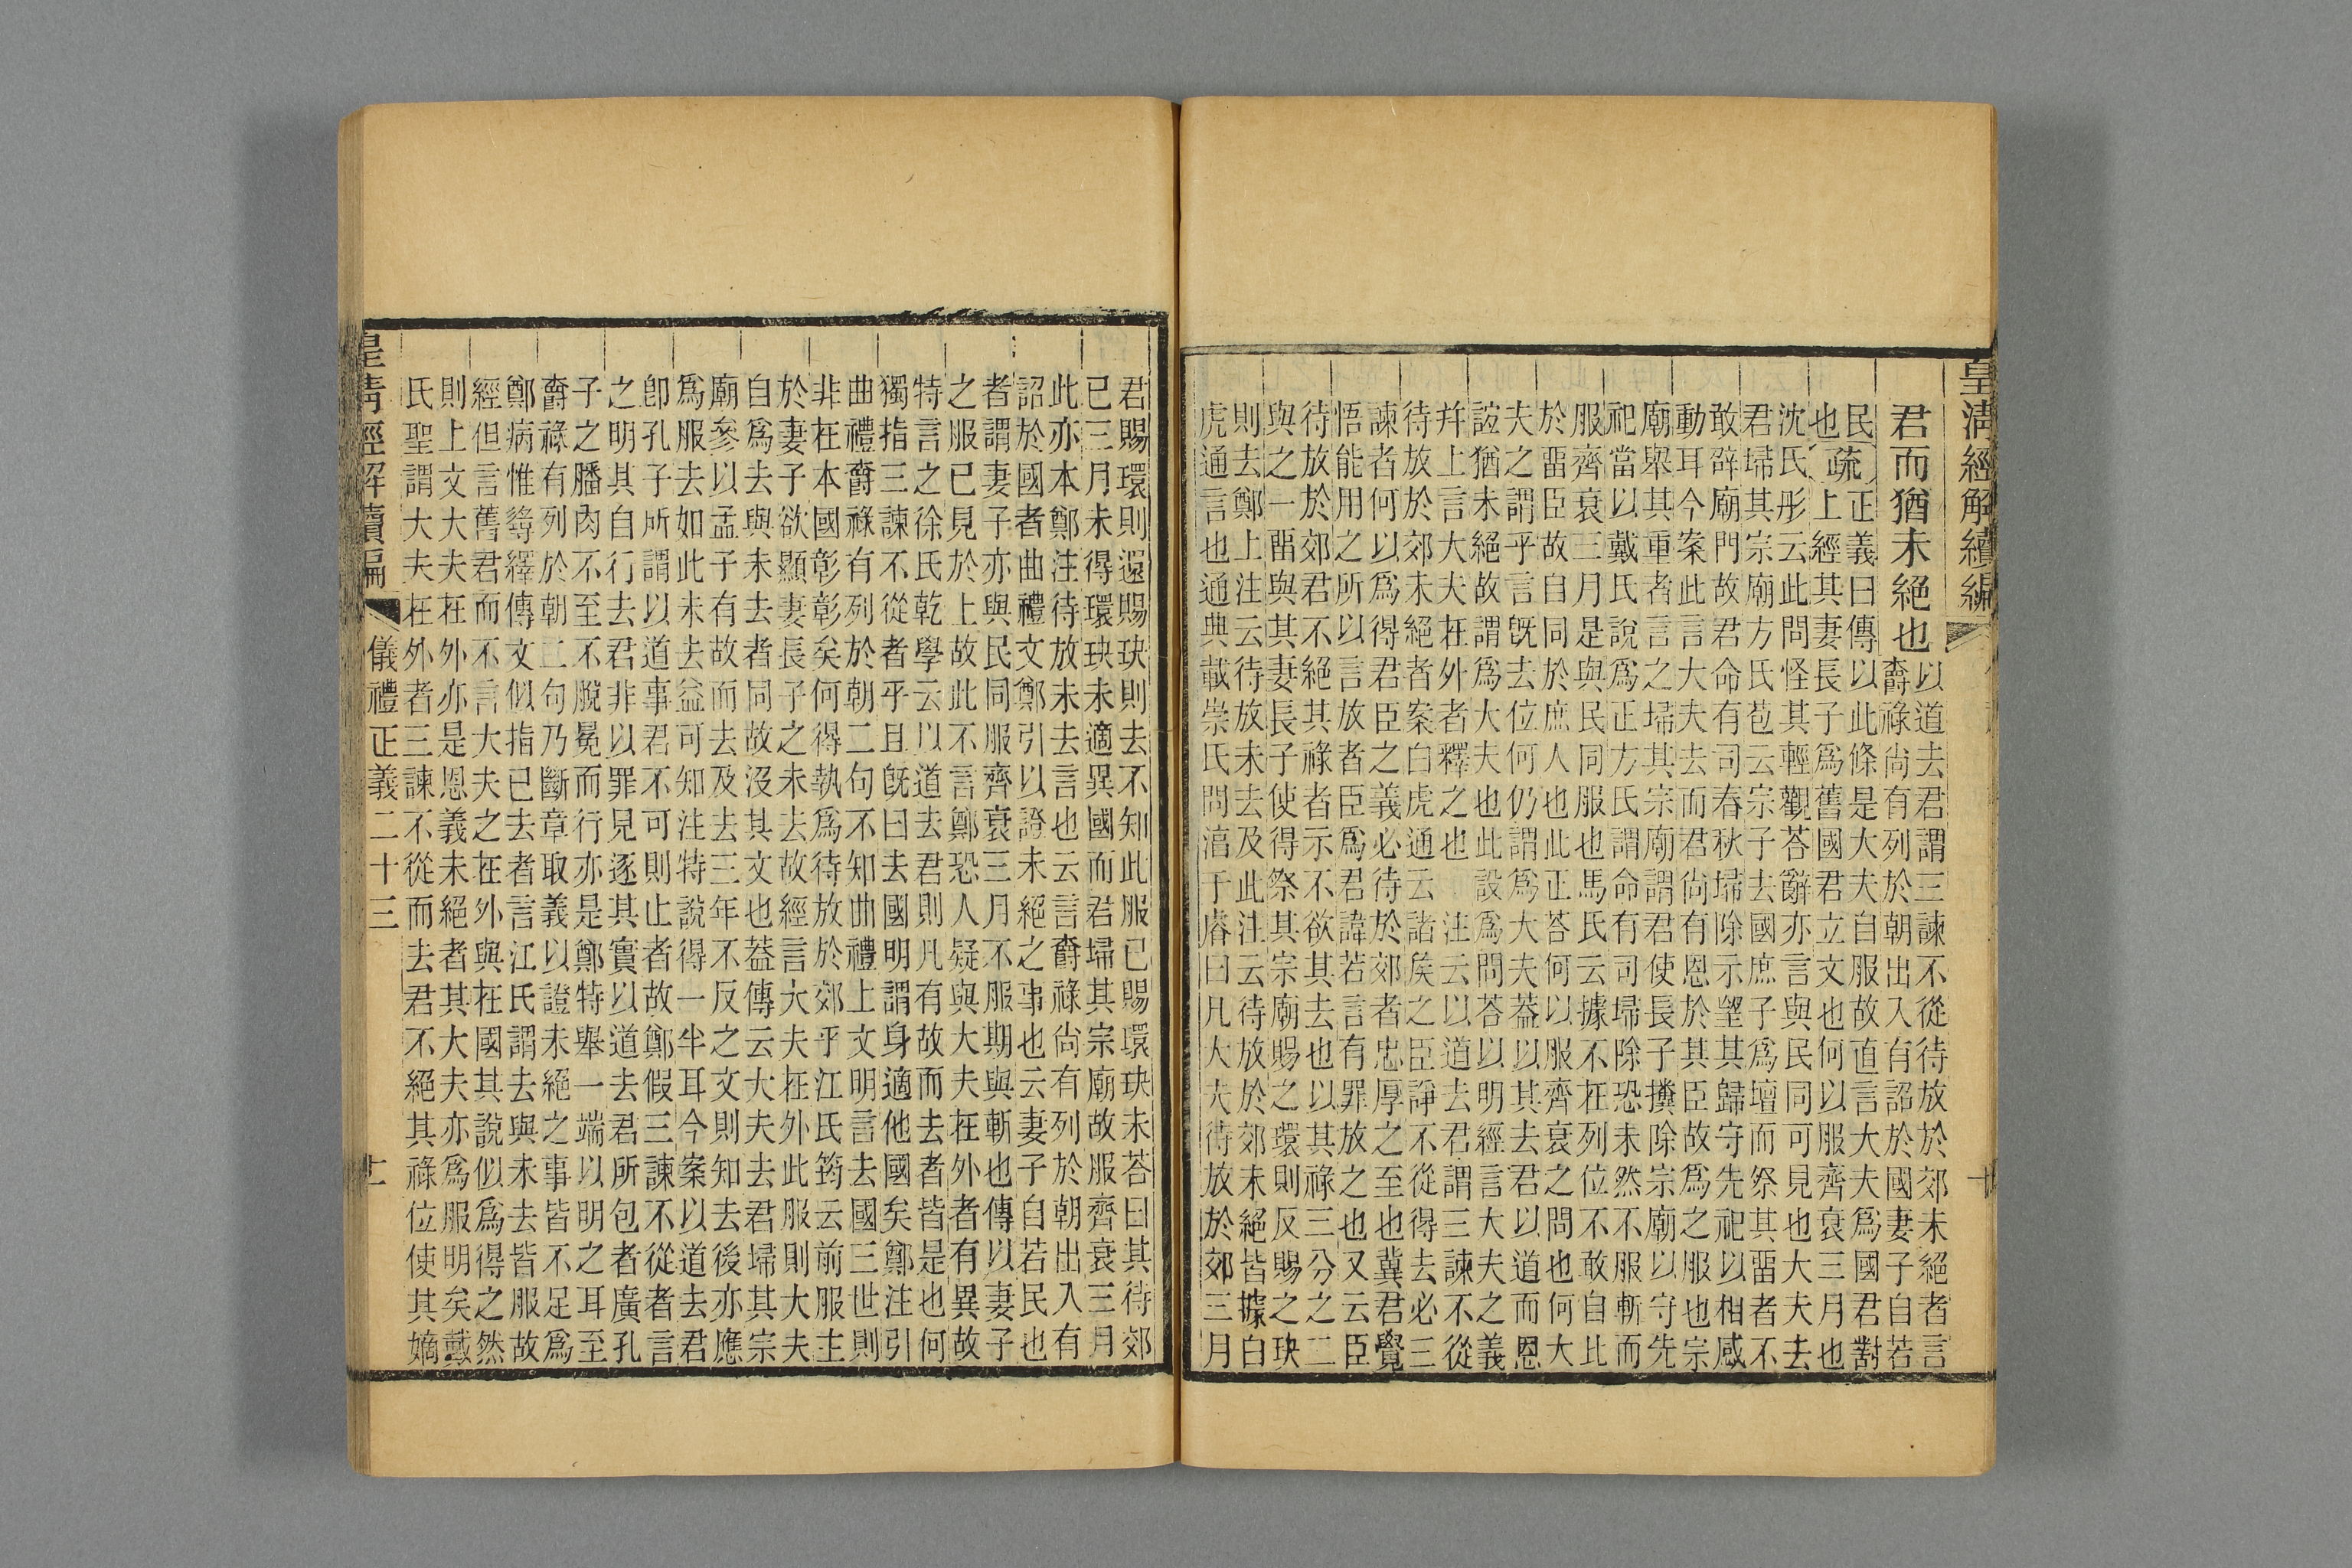 皇清經解續編
十
君而猶未絕也
以道去君謂三諫不從待放於郊未絕者言
爵祿尚有列於朝出入有詔於國妻子自若
民疏正義曰傳以此條是大夫自服故直言大夫爲國君對
也上經其妻長子爲舊國君立文也何以服齊衰三月也
沈氏彤云此問怪其輕觀荅辭亦言與民同可見也大夫去
君埽其宗廟方氏苞云宗子去國庶子爲壇而祭其畱者不
敢辟廟門故君命有司春秋埽除示望其歸守先祀以相感
動耳今案此言大夫去而君尚有恩於其臣故爲之服也宗
廟舉其重者言之埽其宗廟謂君使長子攟除宗廟以守先
祀當以戴氏說爲正方氏謂命有司埽除恐未然不服斬而
服齊衰三月是與民同服也馬氏云據不在列位不敢自比
於畱臣故自同於庶人也此正荅何以服齊衰之問也何大
夫之謂乎言旣去位何仍謂爲大夫葢以其去君以道而恩
誼猶未絕故謂爲大夫也此設爲問荅以明經言大夫之義
幷上言大夫在外者釋之也 注云以道去君謂三諫不從
待放於郊未絕者案白虎通云諸矦之臣諍不從得去必三
諫者何以爲得君臣之義必待於郊者忠厚之至也冀君覺
悟能用之所以言放者臣爲君諱若言有罪放之也又云臣
待放於郊君不絕其祿者示不欲其去也以其祿三分之二
與之一畱與其妻長子使得祭其宗廟賜之環則反賜之玦
則去鄭上注云待放未去及此注云待放於郊未絕皆據白
虎通言也通典載崇氏問淳于睿曰凡大夫待放於郊三月
君賜環則還賜玦則去不知此服已賜環玦未荅曰其待郊
已三月未得環玦未適異國而君埽其宗廟故服齊衰三月
此亦本鄭注待放未去言也云言爵祿尚有列於朝出入有
詔於國者曲禮文鄭引以證未絕之事也云妻子自若民也
者謂妻子亦與民同服齊衰三月不服期與斬也傳以妻子
之服已見於上故此不言鄭恐人疑與大夫在外者有異故
特言之徐氏乾學云以道去君則凡有故而去者皆是也何
獨指三諫不從者乎且旣曰去國明謂身適他國矣鄭注引
曲禮爵祿有列於朝二句不知曲禮上文明言去國三世則
非在本國彰彰矣何得執爲待放於郊乎江氏筠云前服主
於妻子欲顯妻長子之未去故經言大夫在外此服則大夫
自爲去與未去者同故沒其文也葢傳云大夫去君埽其宗
廟參以孟子有故而去及去三年不反之文則知去後亦應
爲服去如此未去益可知注特說得一半耳今案以道去君
卽孔子所謂以道事君不可則止者故鄭假三諫不從者言
之明其自行去君非以罪見逐其實以道去君所包者廣孔
子之膰肉不至不脫冕而行亦是鄭特舉一端以明之耳至
爵祿有列於朝二句乃斷章取義以證未絕之事皆不足爲
鄭病惟尋繹傳文似指已去者言江氏謂去與未去皆服故
經但言舊君而不言大夫之在外與在國其說似爲得之然
則上文大夫在外亦是恩義未絕者其大夫亦爲服明矣戴
氏聖謂大夫在外者三諫不從而去君不絕其祿位使其嫡
皇清經解續編
儀禮正義二十三